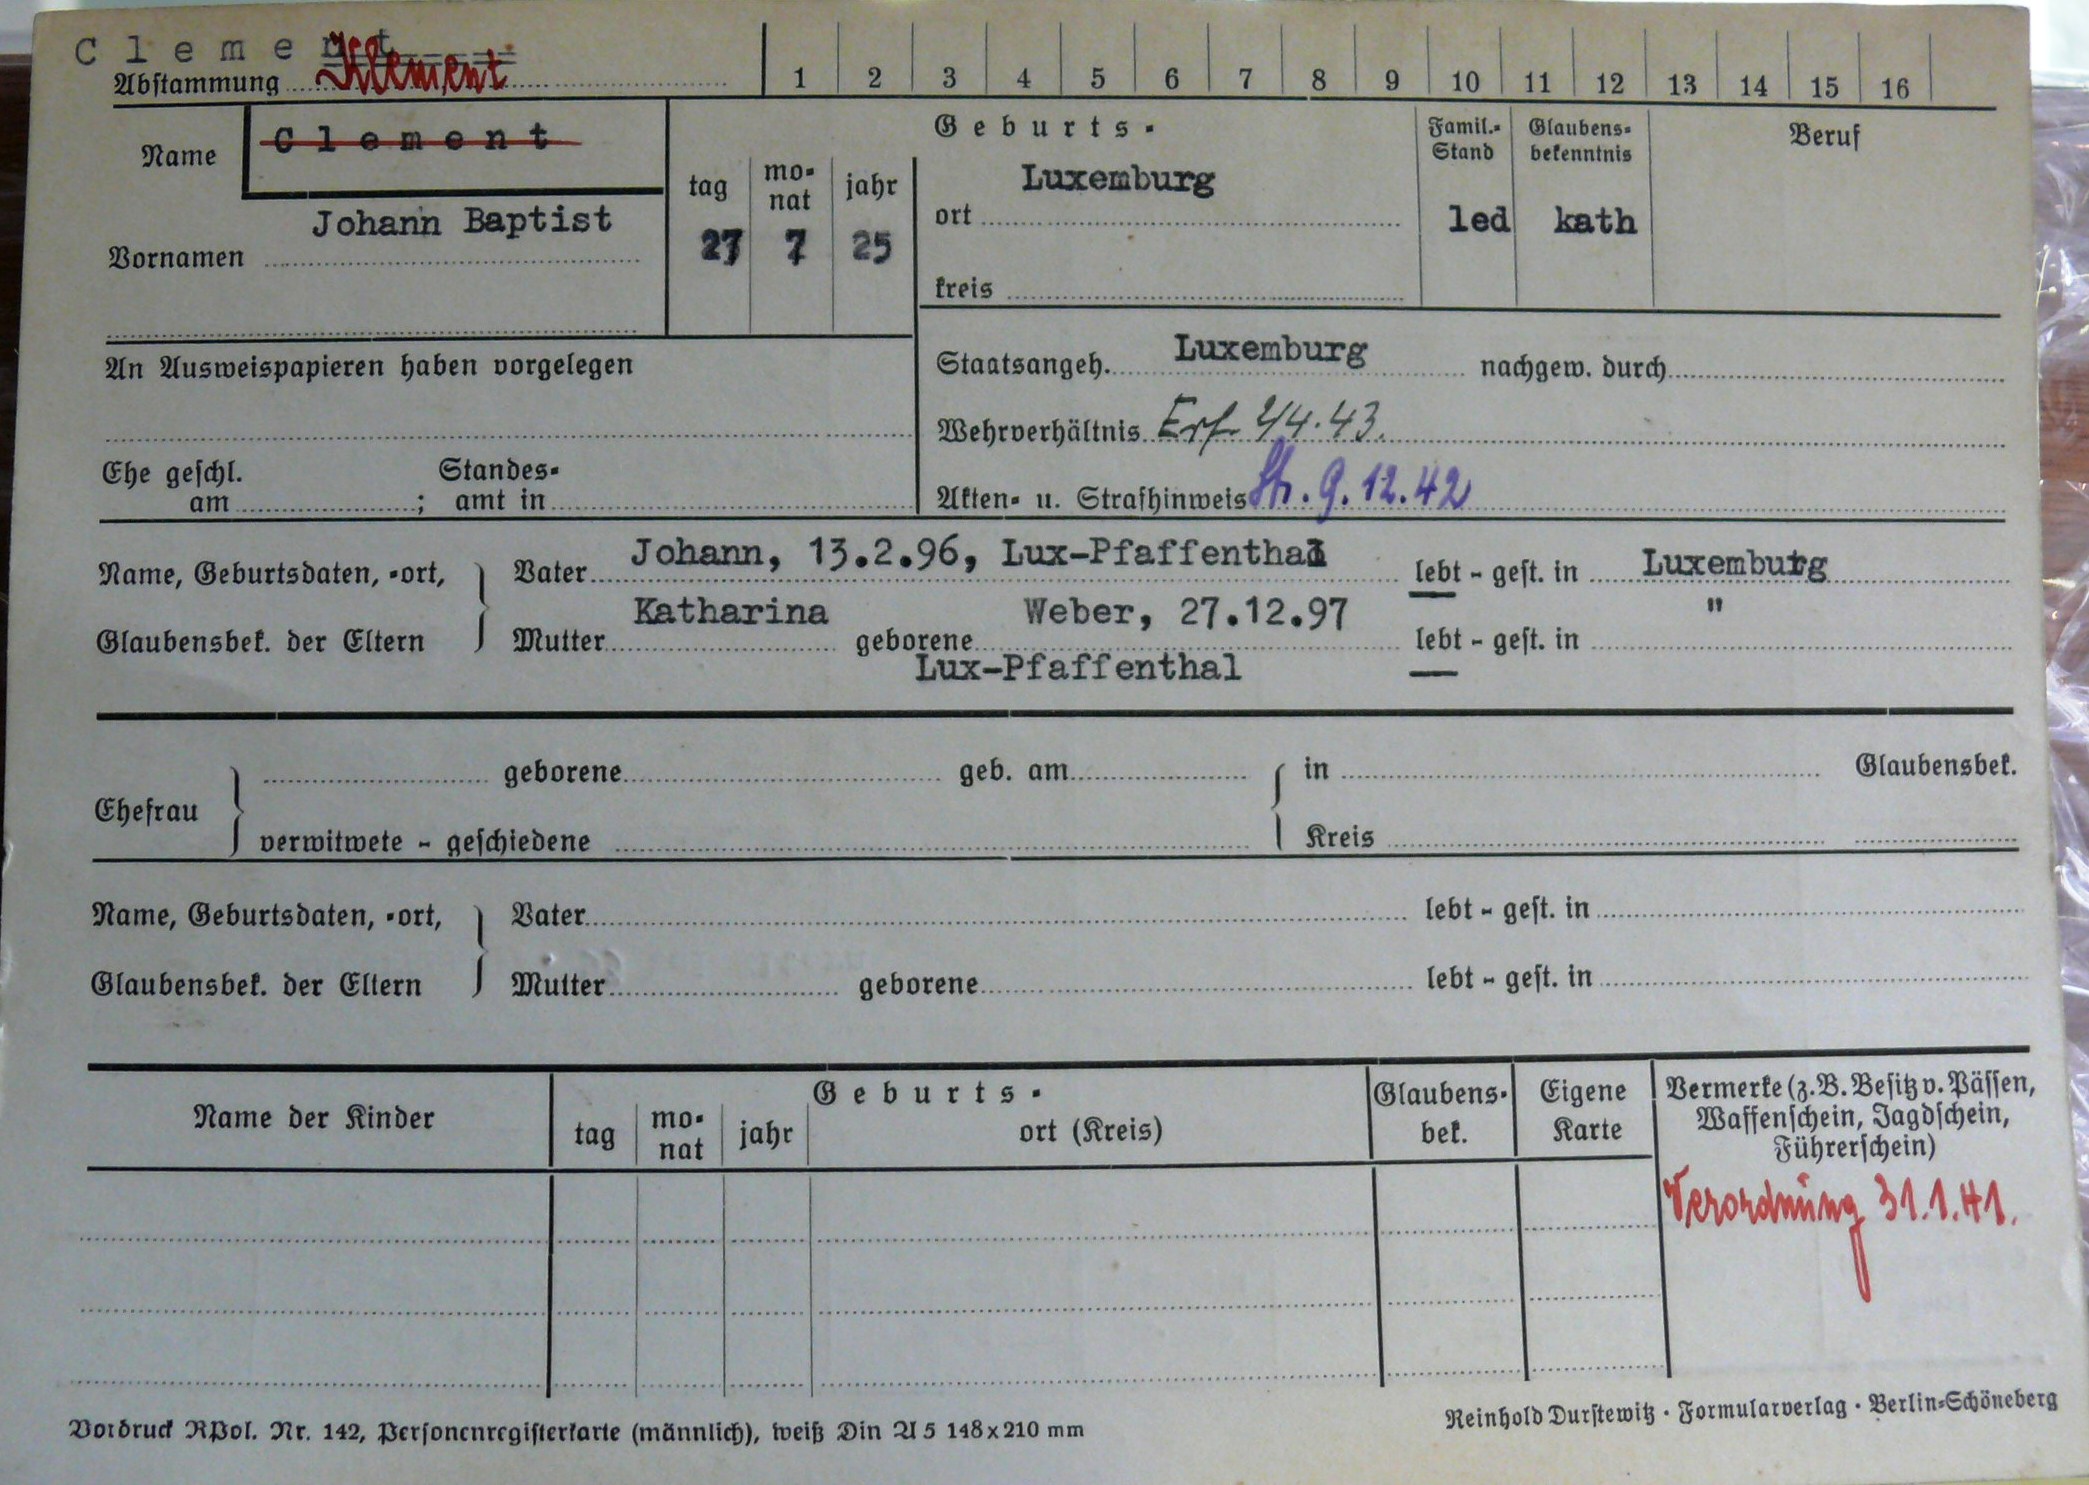 Clement
Abstammung Klement
1 2 3 4 5 6 7 8 9 10 11 12 13 14 15 16
Name Clement
Geburts-
Famil.-Stand
Glaubensbekenntnis
Beruf
tag monat jahr
Luxemburg
ort
led kath
Johann Baptist
Vornamen
27 7 25
kreis
An Ausweispapieren haben vorgelegen
Staatsangeh. Luxemburg nachgew. durch
Wehrverhältnis Erf.
Ehe geschl. Standes-
am ; amt in
Akten- u. Strafhinweis 9.12.42
Name, Geburtsdaten, -ort, Vater Johann, 13.2.96, Lux-Pfaffenthal lebt - gest. in Luxemburg
Glaubensbek. der Eltern Mutter Katharina geborene Weber, 27.12.97 lebt - gest. in "
Lux-Pfaffenthal
Ehefrau
geborene geb. am in Glaubensbek.
verwitwete - geschiedene Kreis
Name, Geburtsdaten, -ort, Vater lebt - gest. in
Glaubensbek. der Eltern Mutter geborene lebt - gest. in
Name der Kinder
Geburts-
tag monat jahr ort (Kreis)
Glaubensbek.
Eigene Karte
Vermerke (z.B. Besitz v. Pässen,
Waffenschein, Jagdschein,
Führerschein)
Verordnung 31.1.41.
Vordruck RPol. Nr. 142, Personenregisterkarte (männlich), weiß Din A 5 148x210 mm
Reinhold Durstewitz · Formularverlag · Berlin-Schöneberg